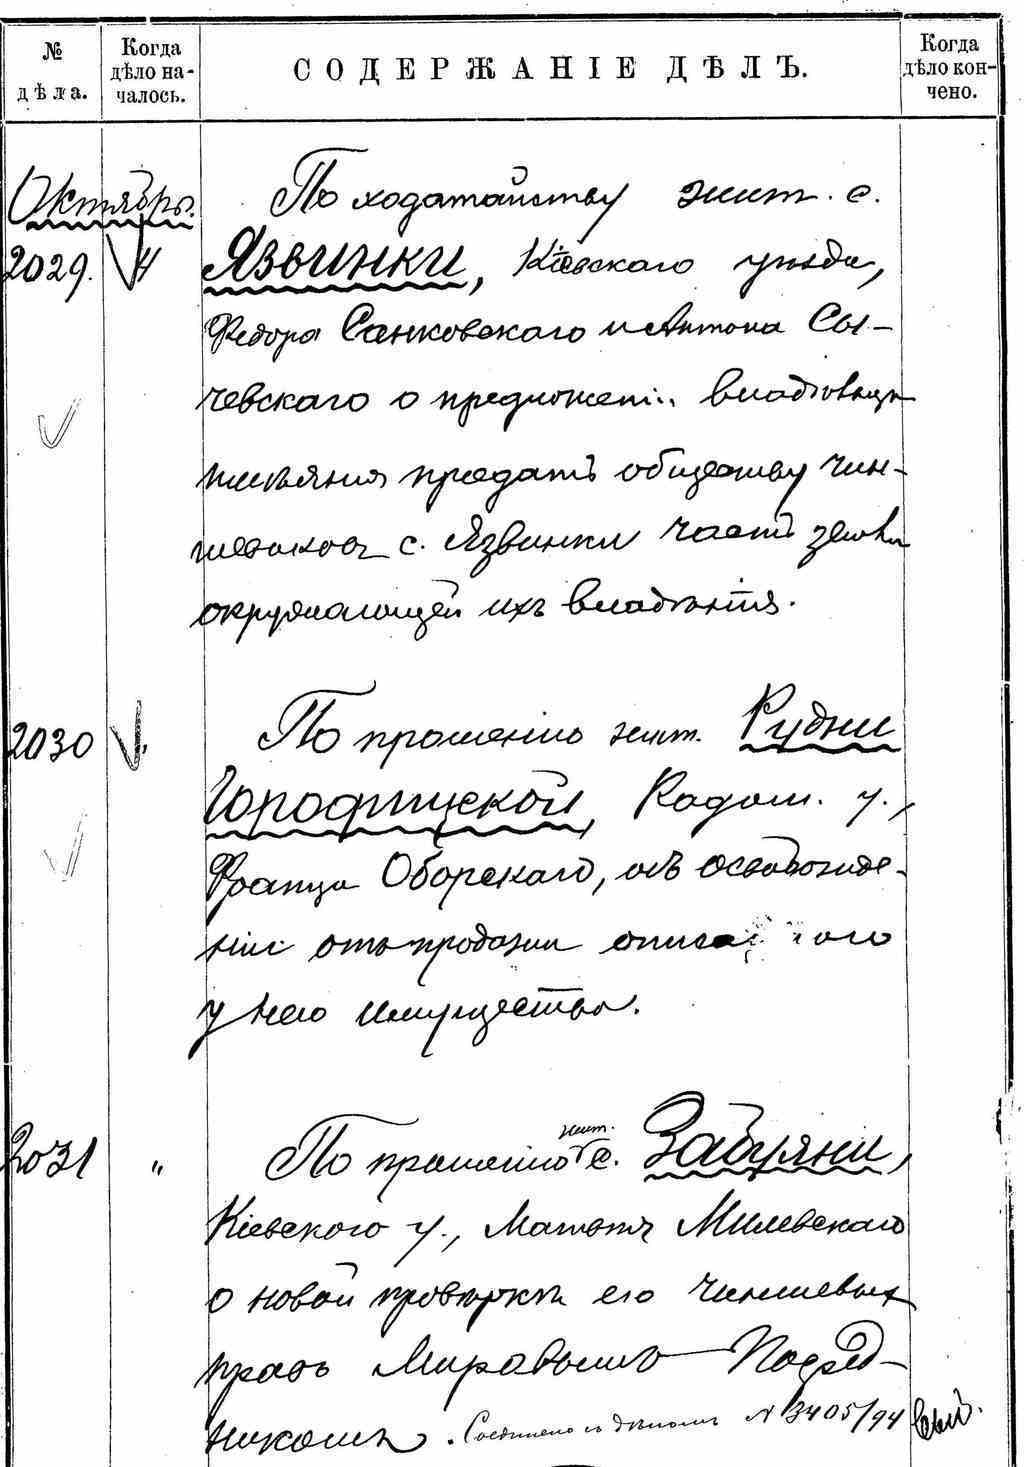 № дѣла.
Когда дѣло началось.
СОДЕРЖАНІЕ ДѢЛЪ.
Когда дѣло кончено.
Октябрь.
2029. 4 По ходатайству жит. с.
Язвинки, Кіевскаго уѣзда,
Федора Санковскаго и Антона Сы-
чевскаго о предложеніи владѣльцу
имѣнія продать обществу чин-
шевиковъ с. Язвинки часть земли
окружающей ихъ владѣнія.
2030 По прошенію жит. Рудни
Городищской, Радом. у.,
Франца Оборскаго, объ освобожде-
ніи отъ продажи
у него имущества.
2031 " По прошенію жит. с. Забуяни,
Кіевскаго у., Матвѣя Милевскаго
о новой провѣркѣ его чиншевыхъ
правъ Мировымъ Посред-
никомъ. Соединено съ дѣломъ № 3405/94